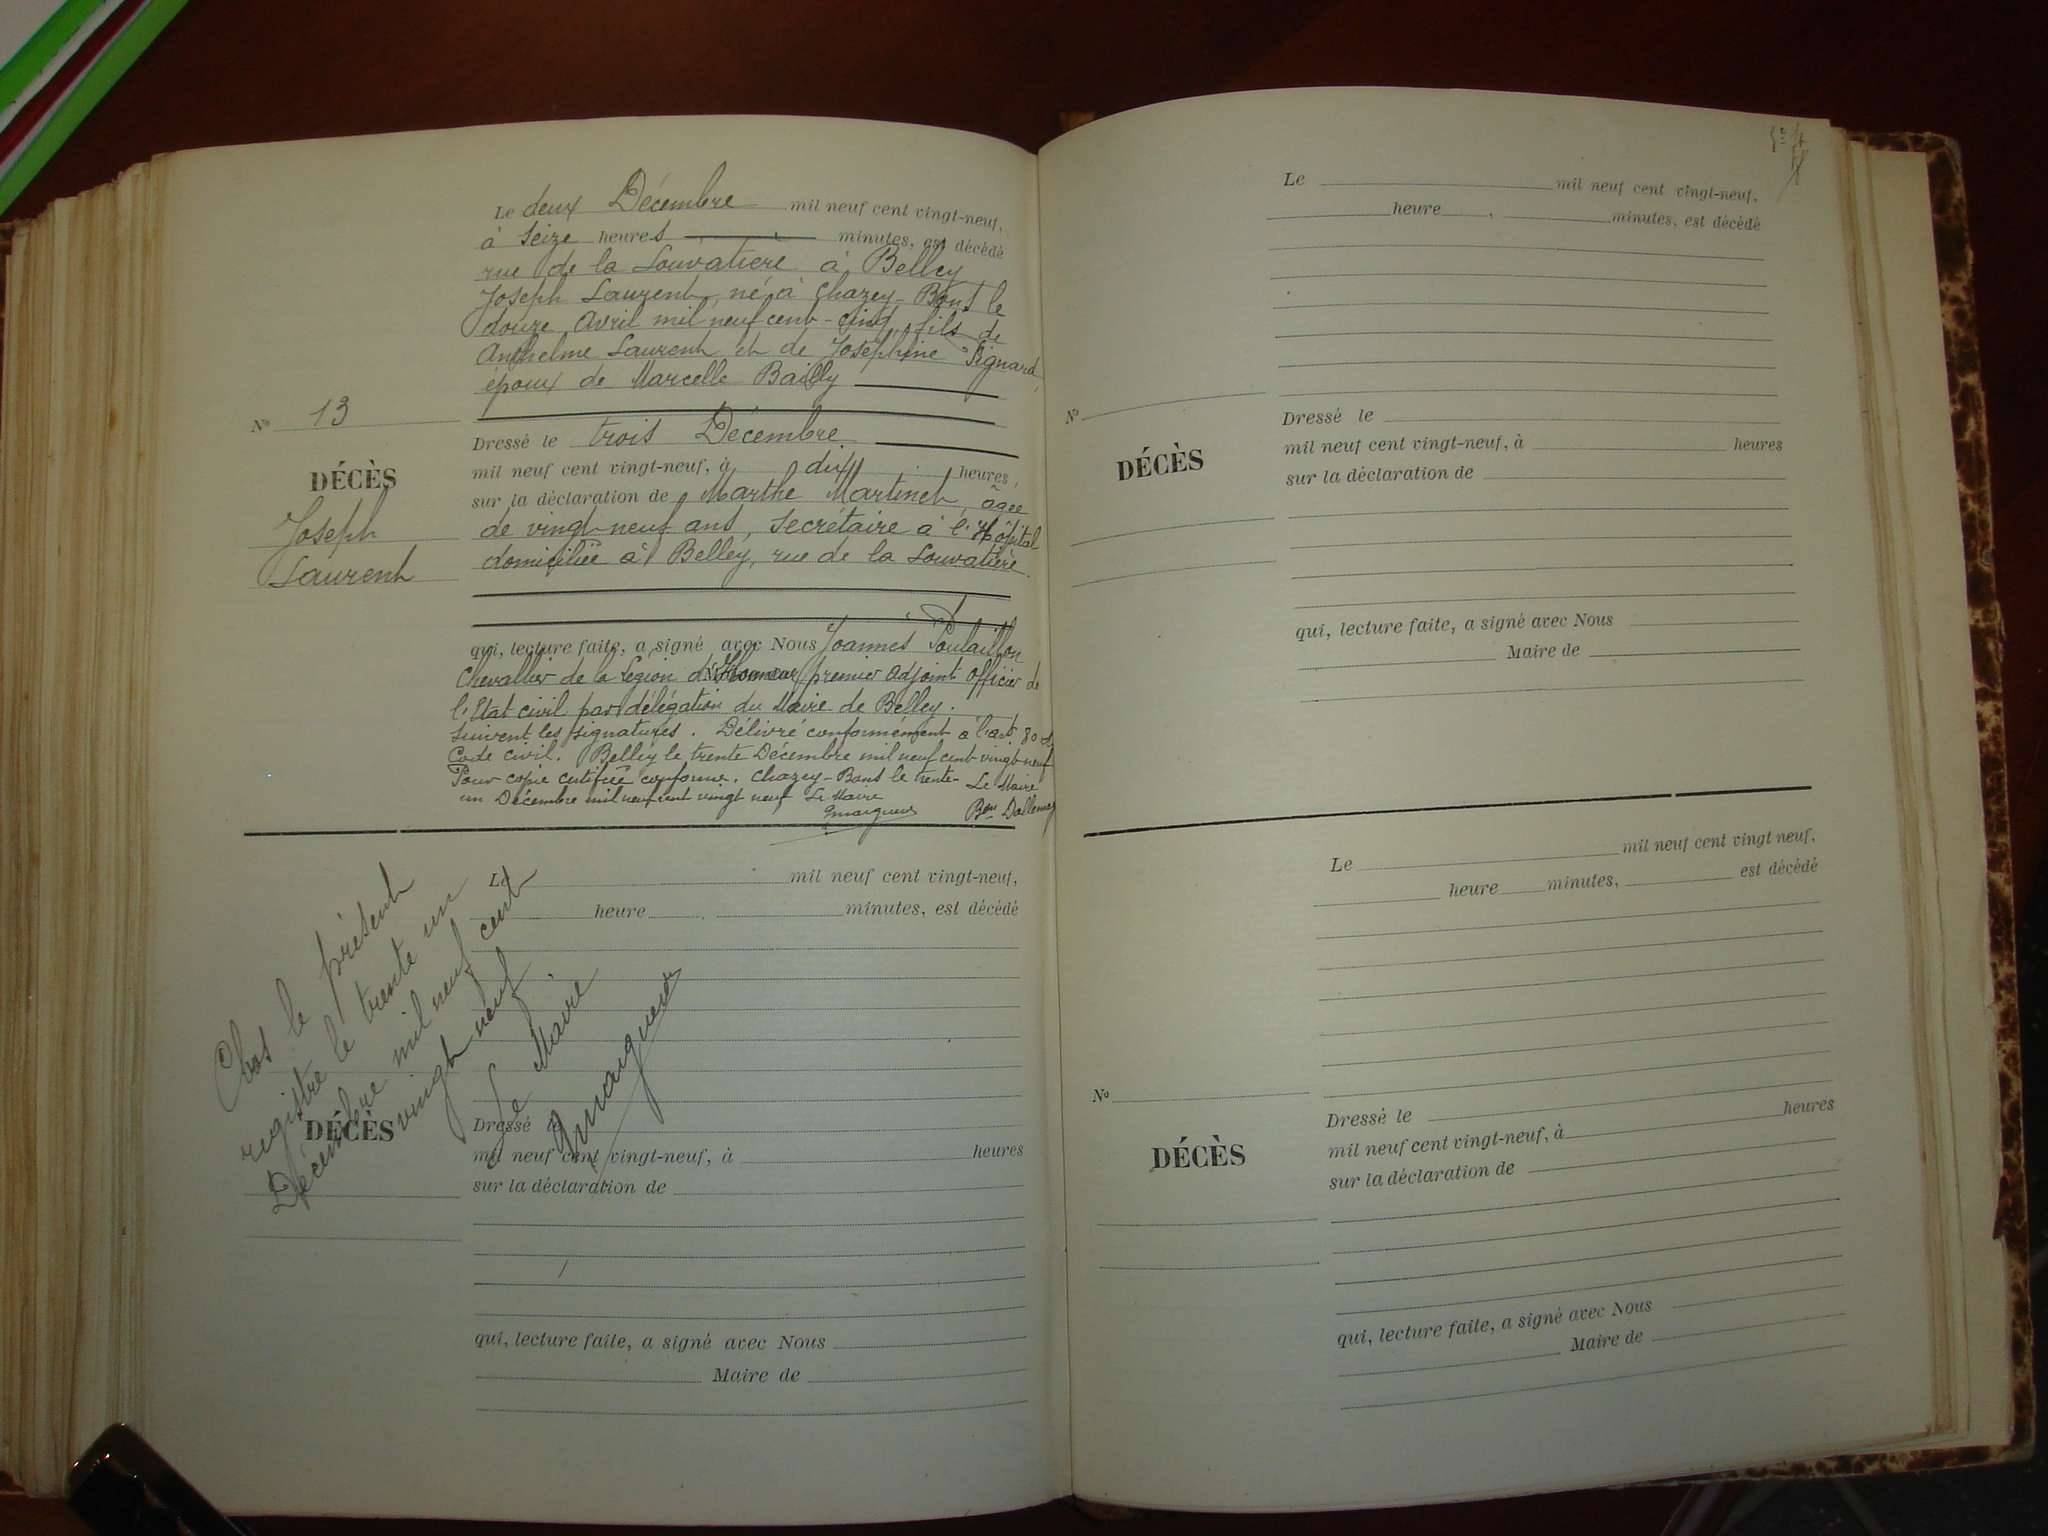 Le deux Décembre mil neuf cent vingt-neuf,
à seize heures minutes, est décédé
rue de la Louvatière à Belley
Joseph Laurent, né à Chazey-Bons le
douze Avril mil neuf cent-cinq, fils de
Anthelme Laurent et de Joséphine Pignard,
époux de Marcelle Bailly
No 13
Dressé le trois Décembre
mil neuf cent vingt-neuf, à dix heures,
DÉCÈS
sur la déclaration de Marthe Martinet, âgée
Joseph
de vingt-neuf ans, secrétaire à l'Hôpital
Laurent
domiciliée à Belley, rue de la Louvatière.
qui, lecture faite, a signé avec Nous Joannès Poulaillon
Chevallier de la Légion d'Honneur premier adjoint officier de
l'Etat civil par délégation du Maire de Belley.
Suivent les signatures. Délivré conformément à l'art 80 du
Code civil. Belley le trente Décembre mil neuf cent vingt-neuf
Pour copie certifiée conforme. Chazey-Bons le trente- Le Maire
un Décembre mil neuf cent vingt neuf Le Maire
Bon Dallemag
Clos le présent
registre le trente un
Décembre mil neuf cent
vingt neuf.
Le Maire
Le mil neuf cent vingt-neuf,
heure , minutes, est décédé
DÉCÈS
Dressé le
mil neuf cent vingt-neuf, à heures
sur la déclaration de
qui, lecture faite, a signé avec Nous
Maire de
Le mil neuf cent vingt-neuf,
heure , minutes, est décédé
No
DÉCÈS
Dressé le
mil neuf cent vingt-neuf, à heures
sur la déclaration de
qui, lecture faite, a signé avec Nous
Maire de
Le mil neuf cent vingt neuf,
heure minutes, est décédé
No
DÉCÈS
Dressé le heures
mil neuf cent vingt-neuf, à
sur la déclaration de
qui, lecture faite, a signé avec Nous
Maire de